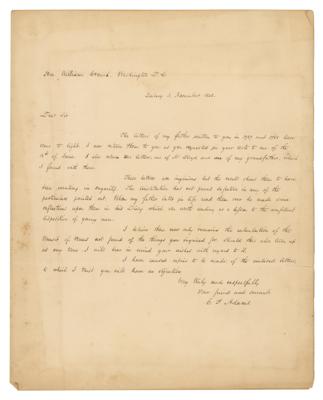 Hon. William Cranch, Washington D. C.
Quincy 3. November 1848.
Dear Sir
The letters of my father written to you in 1787 and 1788 have
come to light. I now return them to you as you requested in your note to me of the
of June. I also return two letters, one of and one of my grandfather, which
I found with them.
These letters are ingenious but the result shows them to have
been wanting in sagacity. The Constitution has not proved defective in any of the
particulars pointed out. When my father later in life read them over he made some
reflections upon them in his Diary which are worth reading as a lesson to the confident
disposition of young men.
I believe there now only remains the calculation of the
transit of Venus not found of the things you inquired for. Should this also turn up
at any time I will bear in mind your wishes with regard to it.
I have caused copies to be made of the enclosed letters,
to which I trust you will have no objection.
Very truly and respectfully
Your friend and servant
C. F. Adams